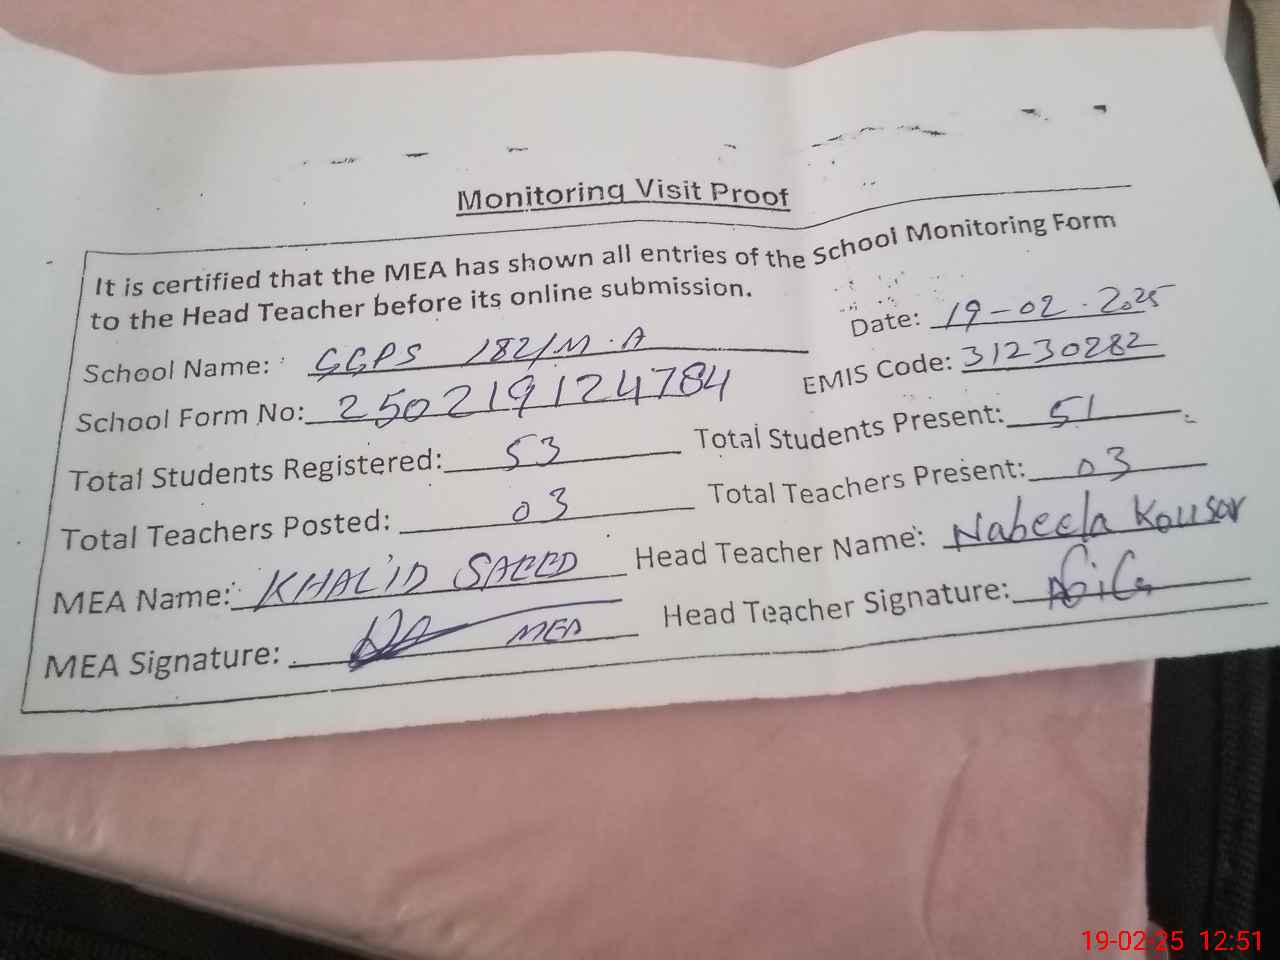 Monitoring Visit Proof
It is certified that the MEA has shown all entries of the School Monitoring Form
to the Head Teacher before its online submission.
Date: 19-02-2025
School Name: GGPS 182/M.A
EMIS Code: 31230282
School Form No: 250219124784
Total Students Registered: 53
Total Students Present: 51
Total Teachers Posted: 03
Total Teachers Present: 03
MEA Name: KHALID SAEED
Head Teacher Name: Nabeela Kousar
MEA Signature: MEA
Head Teacher Signature:
19-02-25 12:51